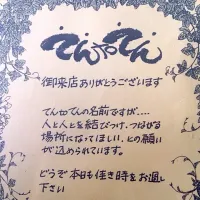 てんやてん
御来店ありがとうございます
てんやてんの名前ですが....
人と人とを結びつけ、つながる
場所になってほしい、との願い
が込められています。
どうぞ本日も佳き時をお過し
下さい